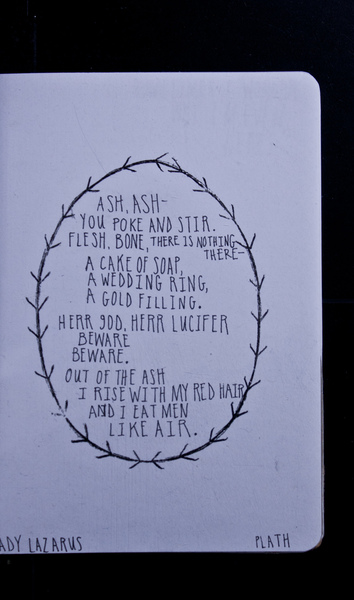 ASH, ASH-
YOU POKE AND STIR.
FLESH, BONE, THERE IS NOTHING
THERE-
A CAKE OF SOAP,
A WEDDING RING,
A GOLD FILLING.
HERR GOD, HERR LUCIFER
BEWARE
BEWARE.
OUT OF THE ASH
I RISE WITH MY RED HAIR
AND I EAT MEN
LIKE AIR.
ADY LAZARUS PLATH